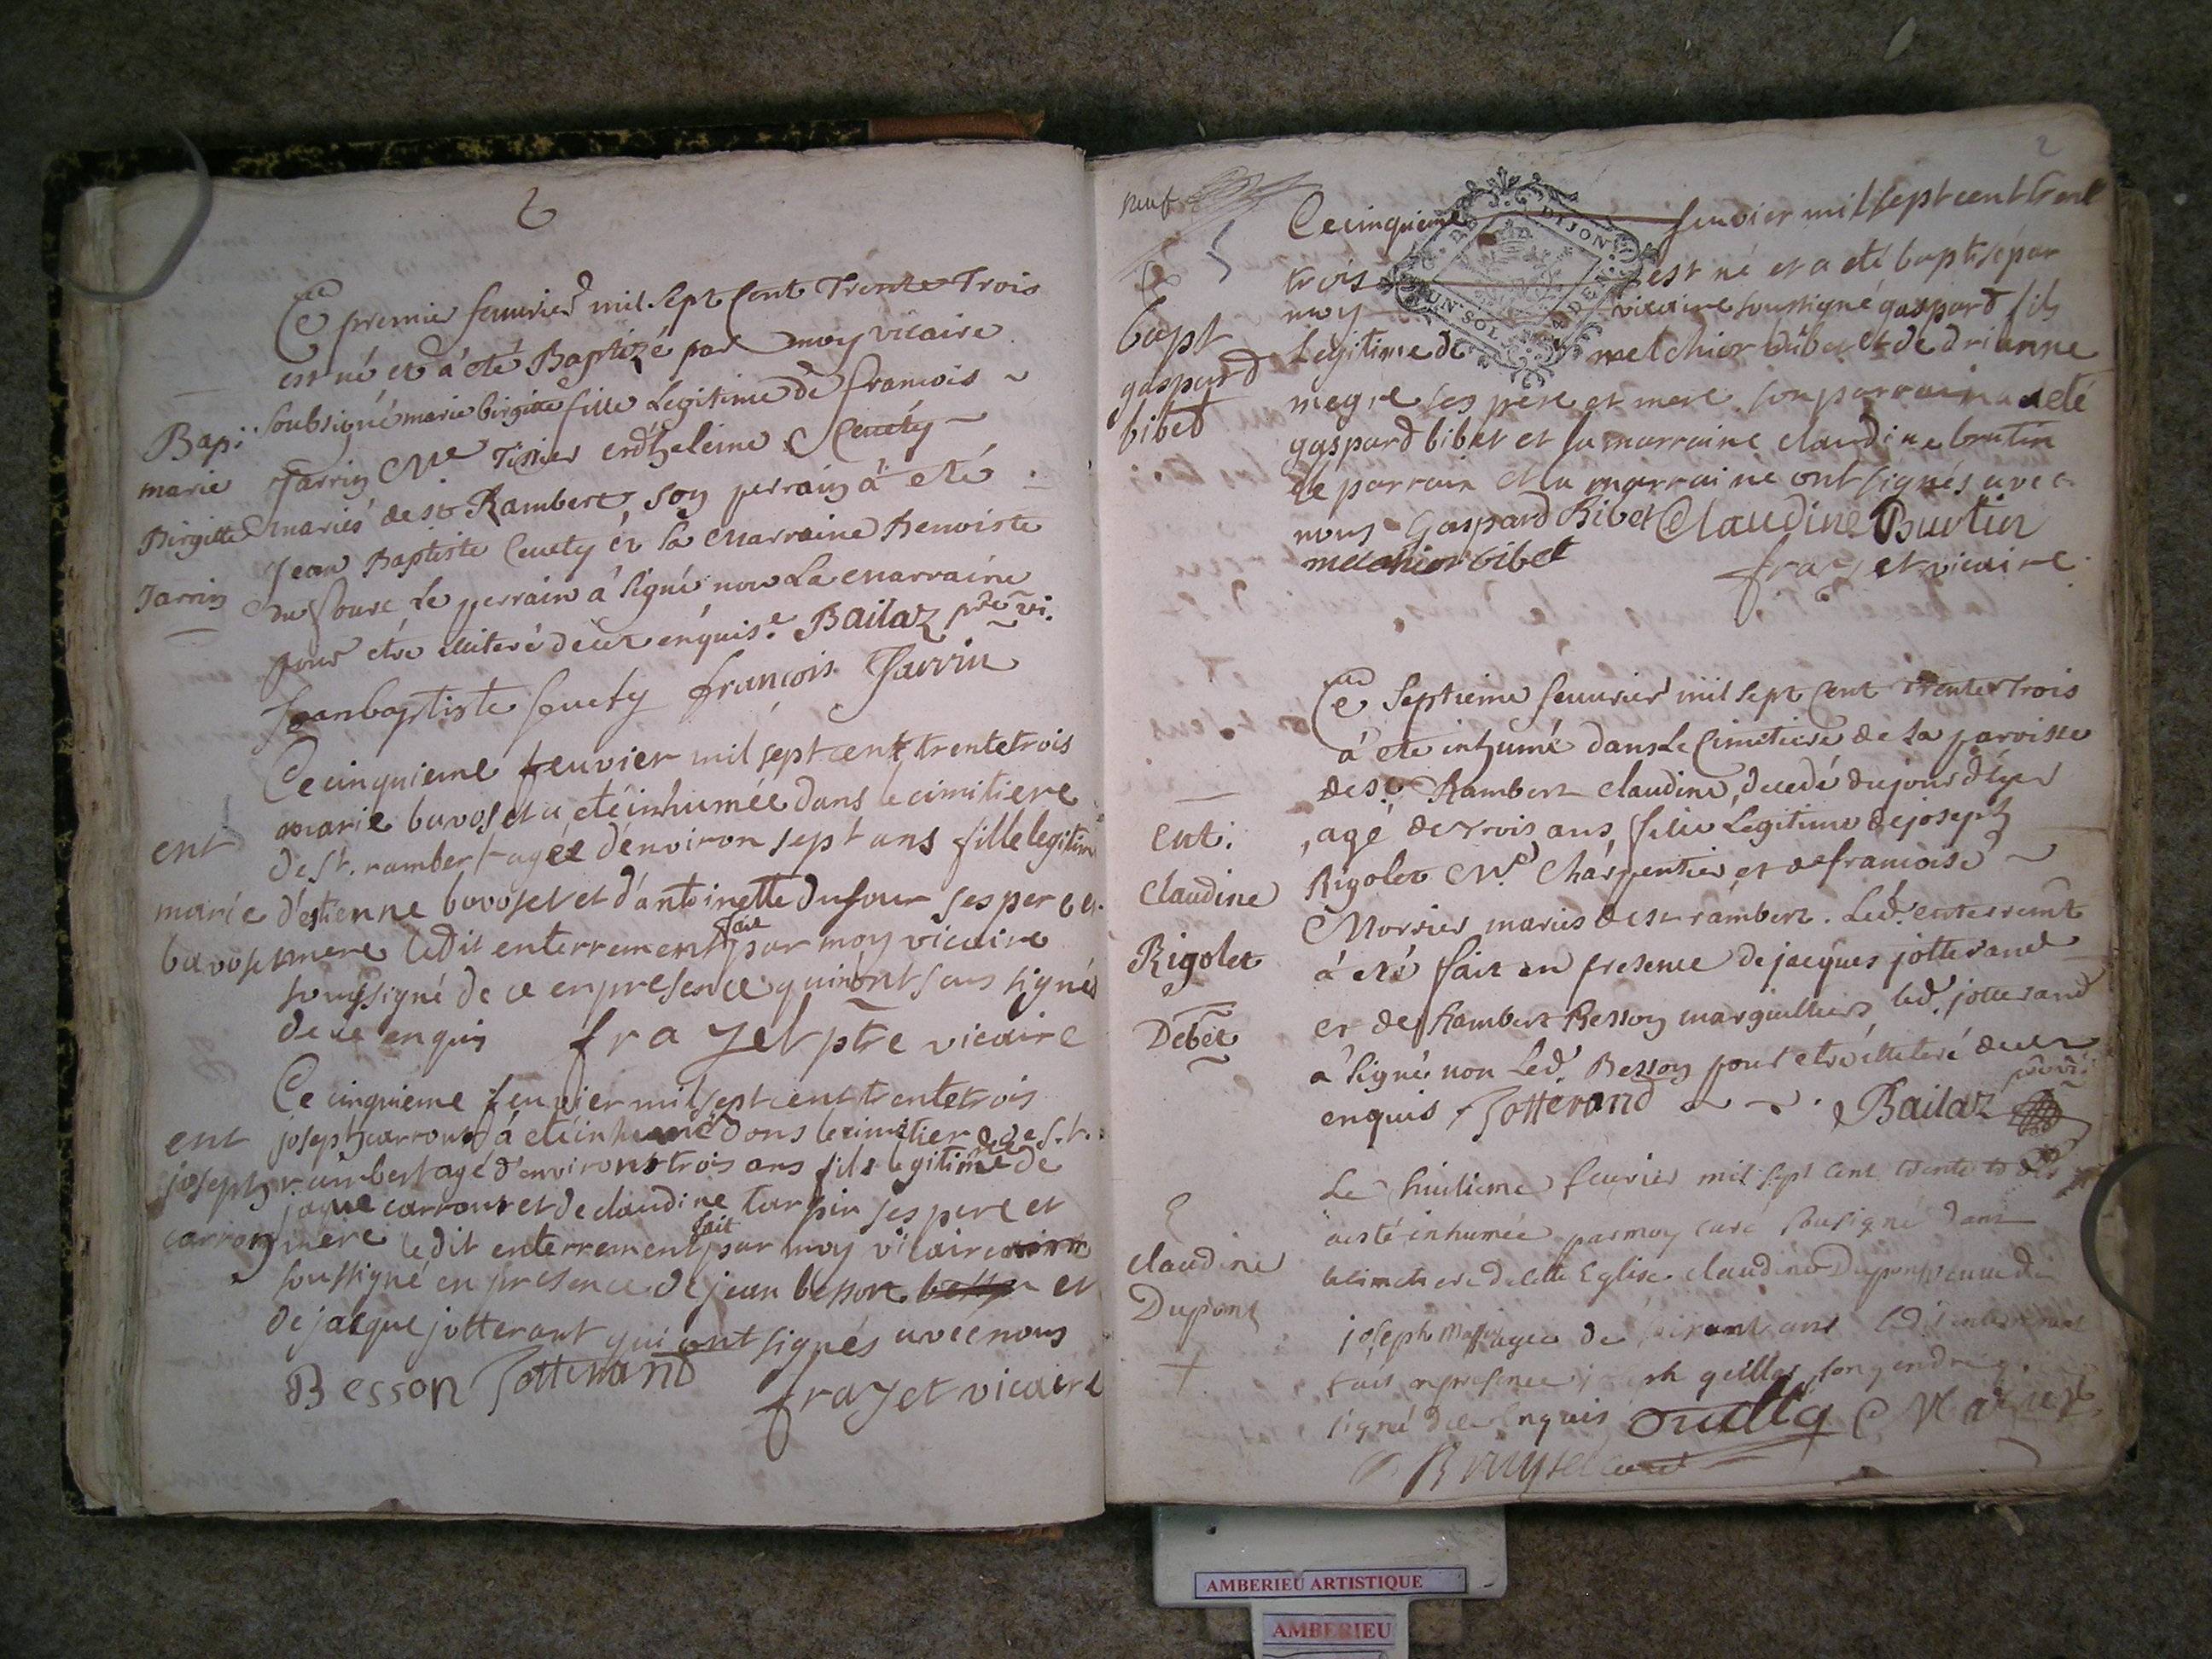 2
Ce premier feuurier mil sept cent Trente Trois
est né et à eté Baptizé par moy vicaire
soubsigné marie birgitte fille Legitime de francois
Bap:
Jarrin Me Tissier et d'heleine Ceuty
marie
mariés de st Rambert, son perrain à eté
Birgitte
Jean Baptiste Ceuty et la Marraine Benoiste
Jarrin
Du four, Le perrain à signé non La marraine
pour etre illiteré de ce enquise. Bailaz ptre vi.
Jean baptiste Ceuty françois Jarrin
Ce cinquieme feuvier mil sept cent trente trois
marie bavoset a eté inhumée dans le cimitiere
ent
de st. rambert agée d'environ sept ans fille legitime
marie
d'estienne bovoset et d'antoinette dufour ses pere et
bavoset
mere ledit enterrement fait par moy vicaire
soussigné de ce en presence qui n'ont sous signés
de ce enquis frazet ptre vicaire
Ce cinquieme feuvier mil sept cent trente trois
ent
joseph carron à eté inhumé dans le cimitiere de st.
joseph
rambert agé d'environs trois ans fils legitime de
jaque carront et de claudine tarpin ses pere et
carron
mere ledit enterrement fait par moy vicaire
soussigné en presence de jean besson et
de jacque jotterant qui ont signés avec nous
Besson Jotterand
frazet vicaire
2
neuf
Ce cinquieme feuvier mil sept cent trente
trois est né et a eté baptisé par
moy vicaire soussigné gaspard fils
bapt
Legitime de melchior bibet et de drianne
gaspard
megre ses pere et mere son parrain a eté
bibet
gaspard bibet et sa marraine claudine brutin
le parrain et la marraine ont signés avec
nous Gaspard Bibet Claudine Burtin
melchior bibet
frazet vicaire
DIJON
UN SOL
Ce septieme feuurier mil sept cent trente trois
à eté inhumé dans Le Cimetiere de La paroisse
de st. Rambert claudine, decedé du jour d'hyer
ent:
agé de trois ans, fille Legitime de joseph
claudine
Rigolet Me. Charpentier et de francoise
Morrier mariés de st rambert. Led. enterremt
Rigolet
à eté fait en presence de jacques jotterand
Debet
et de Rambert Besson marguilliers led. jotterand
à signé non Led. Besson pour etre illiteré de ce
enquis Jotterand Bailaz ptre vi.
Le huitieme feurier mil sept cent trente trois
a esté inhumée par moy curé sousigné dans
claudine
le cimetiere de cette Eglise claudine Dupont veuve de
Dupont
joseph agée de ans
fait en presence son gendre
signé de ce Enquis